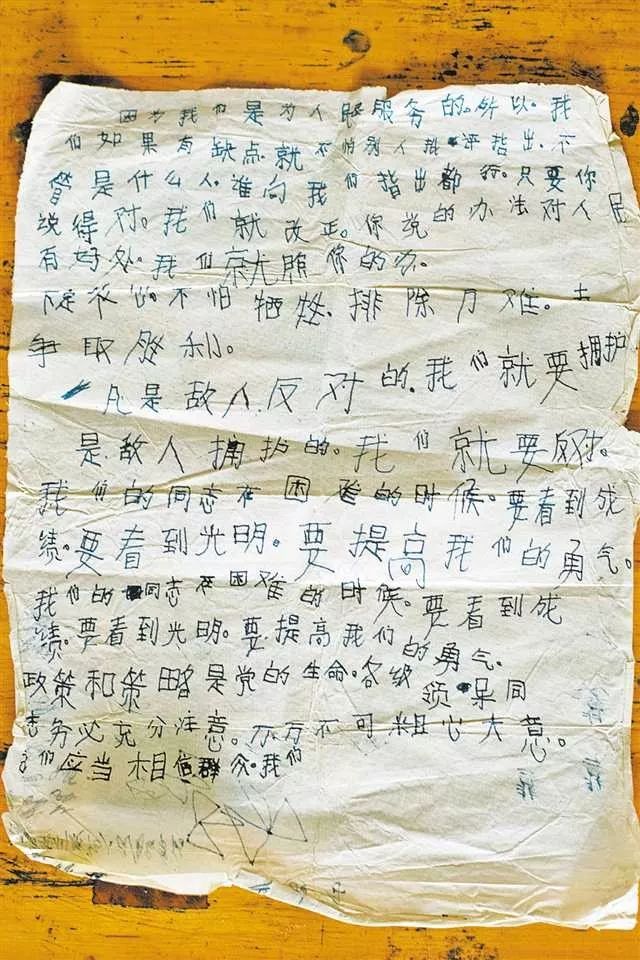 因为我们是为人民服务的。所以。我
们如果有缺点就不怕别人批评指出.不
管是什么人.谁向我们指出都行.只要你
说得对。我们就改正。你说的办法对人民
有好处。我们就照你的办。
下定决心.不怕牺牲.排除万难。去
争取胜利。
凡是敌人反对的.我们就要拥护
是敌人拥护的。我们就要反对.
我们的同志在困难的时候。要看到成
绩。要看到光明。要提高我们的勇气。
我们的同志在困难的时候。要看到成
绩。要看到光明。要提高我们的勇气.
政策和策略是党的生命.各级领导同
志务必充分注意。万万不可粗心大意。
我们应当相信群众.我们